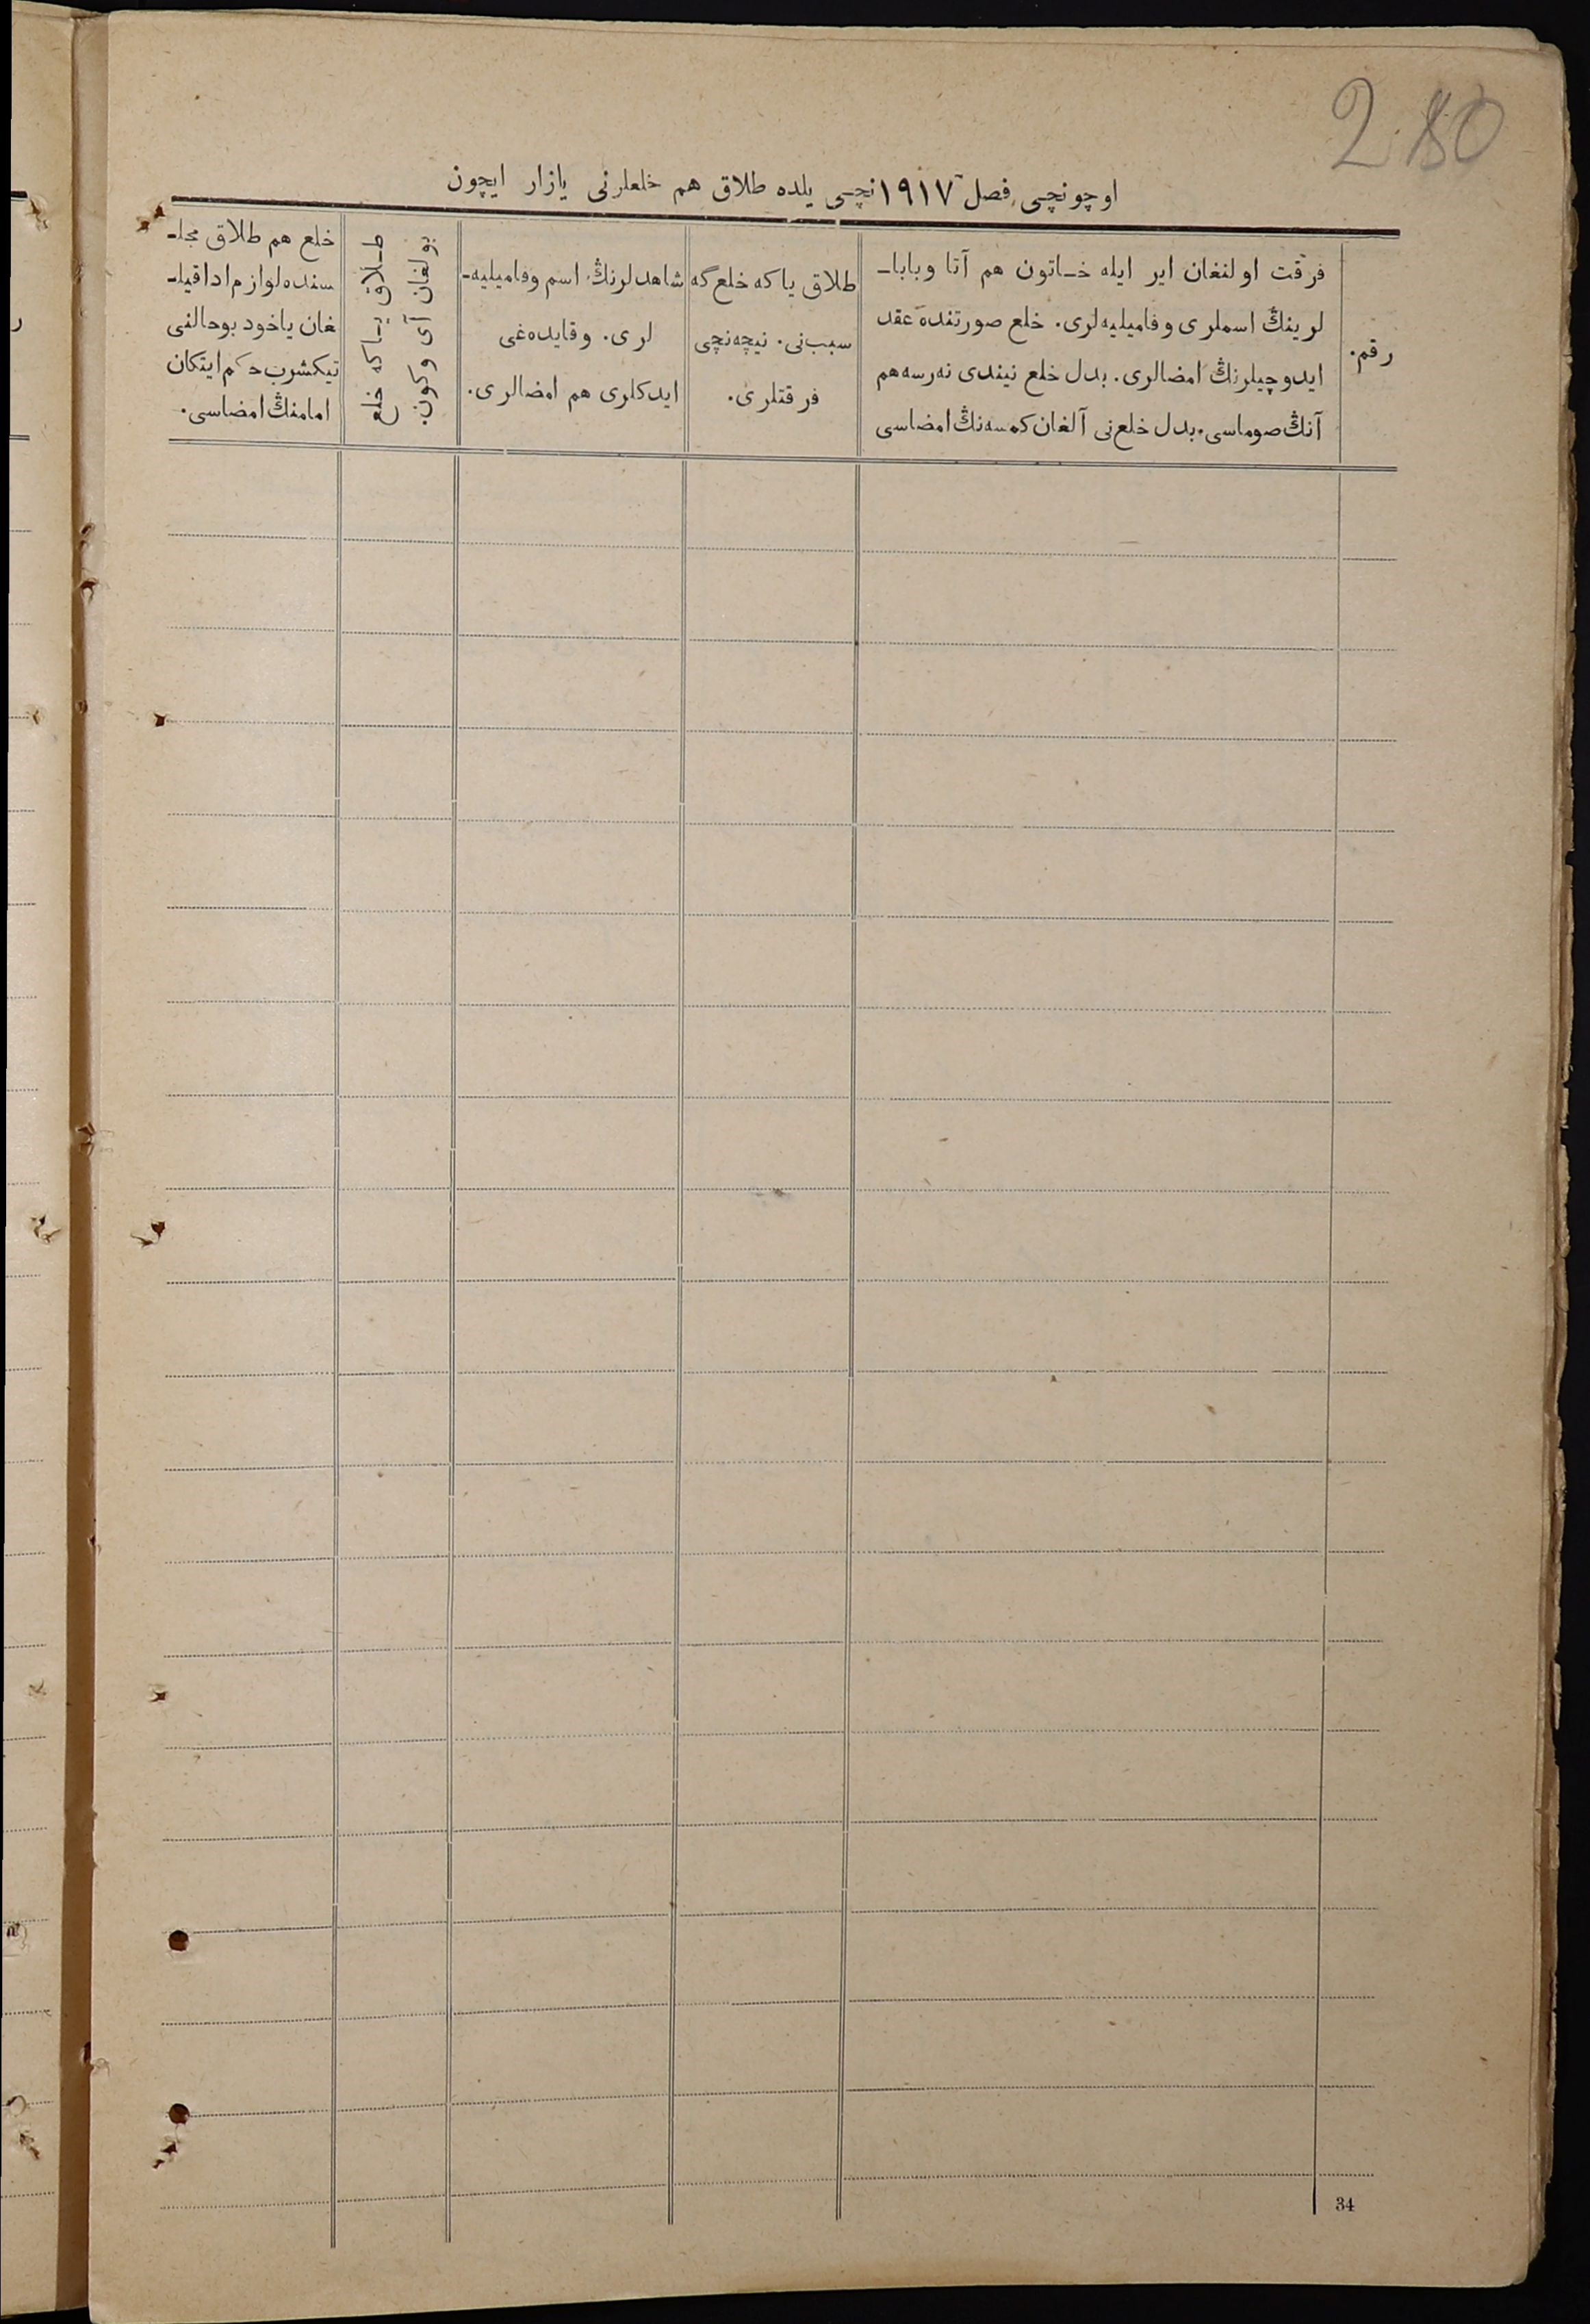 280
اوچونچی فصل ١٩١٧ نچی یلده طلاق هم خلعلرنی یازار ایچون
رقم.
فرقت اولنغان ایر ایله خاتون هم آتا وبابا-
لرینڭ اسملری وفامیلیه‌لری. خلع صورتنده عقد
ایدوچیلرنڭ امضالری. بدل خلع نیندی نه‌رسه هم
آنڭ صوماسی. بدل خلع‌نی آلغان کمسه‌نڭ امضاسی
طلاق یا که خلع گه
سبب نی. نیچه‌نچی
فرقتلری.
شاهدلرنڭ اسم وفامیلیه-
لری. وقایده‌غی
ایدکلری هم امضالری.
طلاق یاکه خلع
بولغان آی وکون.
خلع هم طلاق مجلـ
سنده لوازم ادا قیلـ
غان یاخود بوحالنی
تیکشرب حکم ایتکان
امامنڭ امضاسی.
34